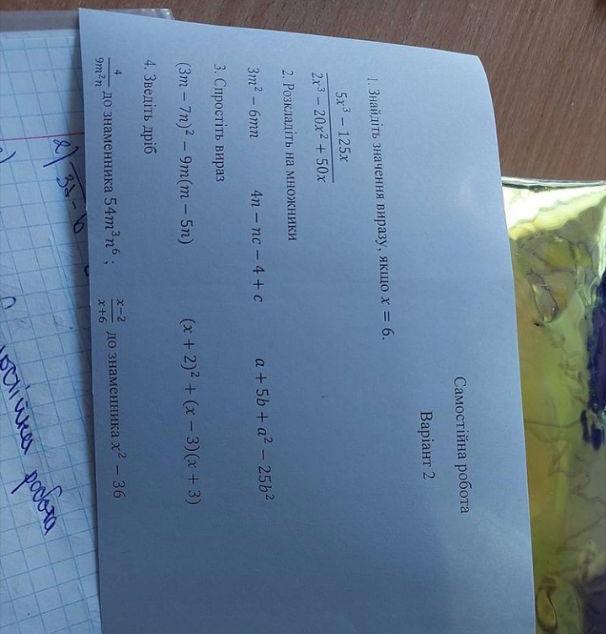 Самостійна робота
Варіант 2
1. Знайдіть значення виразу, якщо x = 6.
5x³ − 125x
2x³ − 20x² + 50x
2. Розкладіть на множники
3m² − 6mn 4n − nc − 4 + c a + 5b + a² − 25b²
3. Спростіть вираз
(3m − 7n)² − 9m(m − 5n) (x + 2)² + (x − 3)(x + 3)
4. Зведіть дріб
4/9m²n до знаменника 54m³n⁶ ; x−2/x+6 до знаменника x² − 36
2) 3a - b
робота